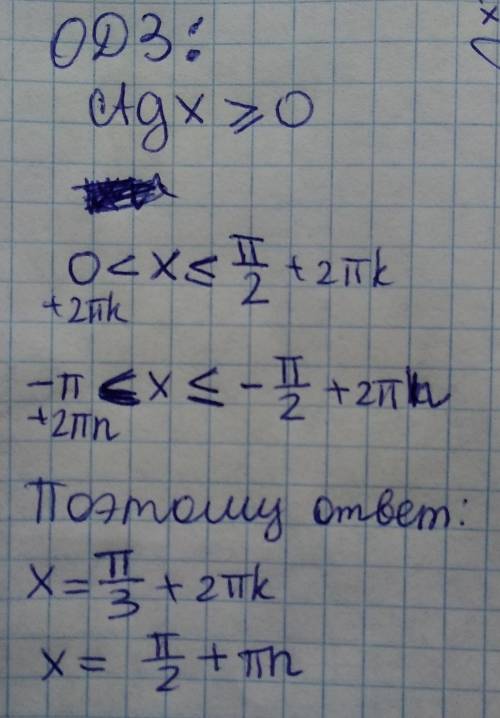 ОДЗ:
ctg x ⩾ 0
0 < x ≤ π/2 + 2πk
+2πk
-π < x ≤ -π/2 + 2πn
+2πn
Поэтому ответ:
x = π/3 + 2πk
x = π/2 + πn